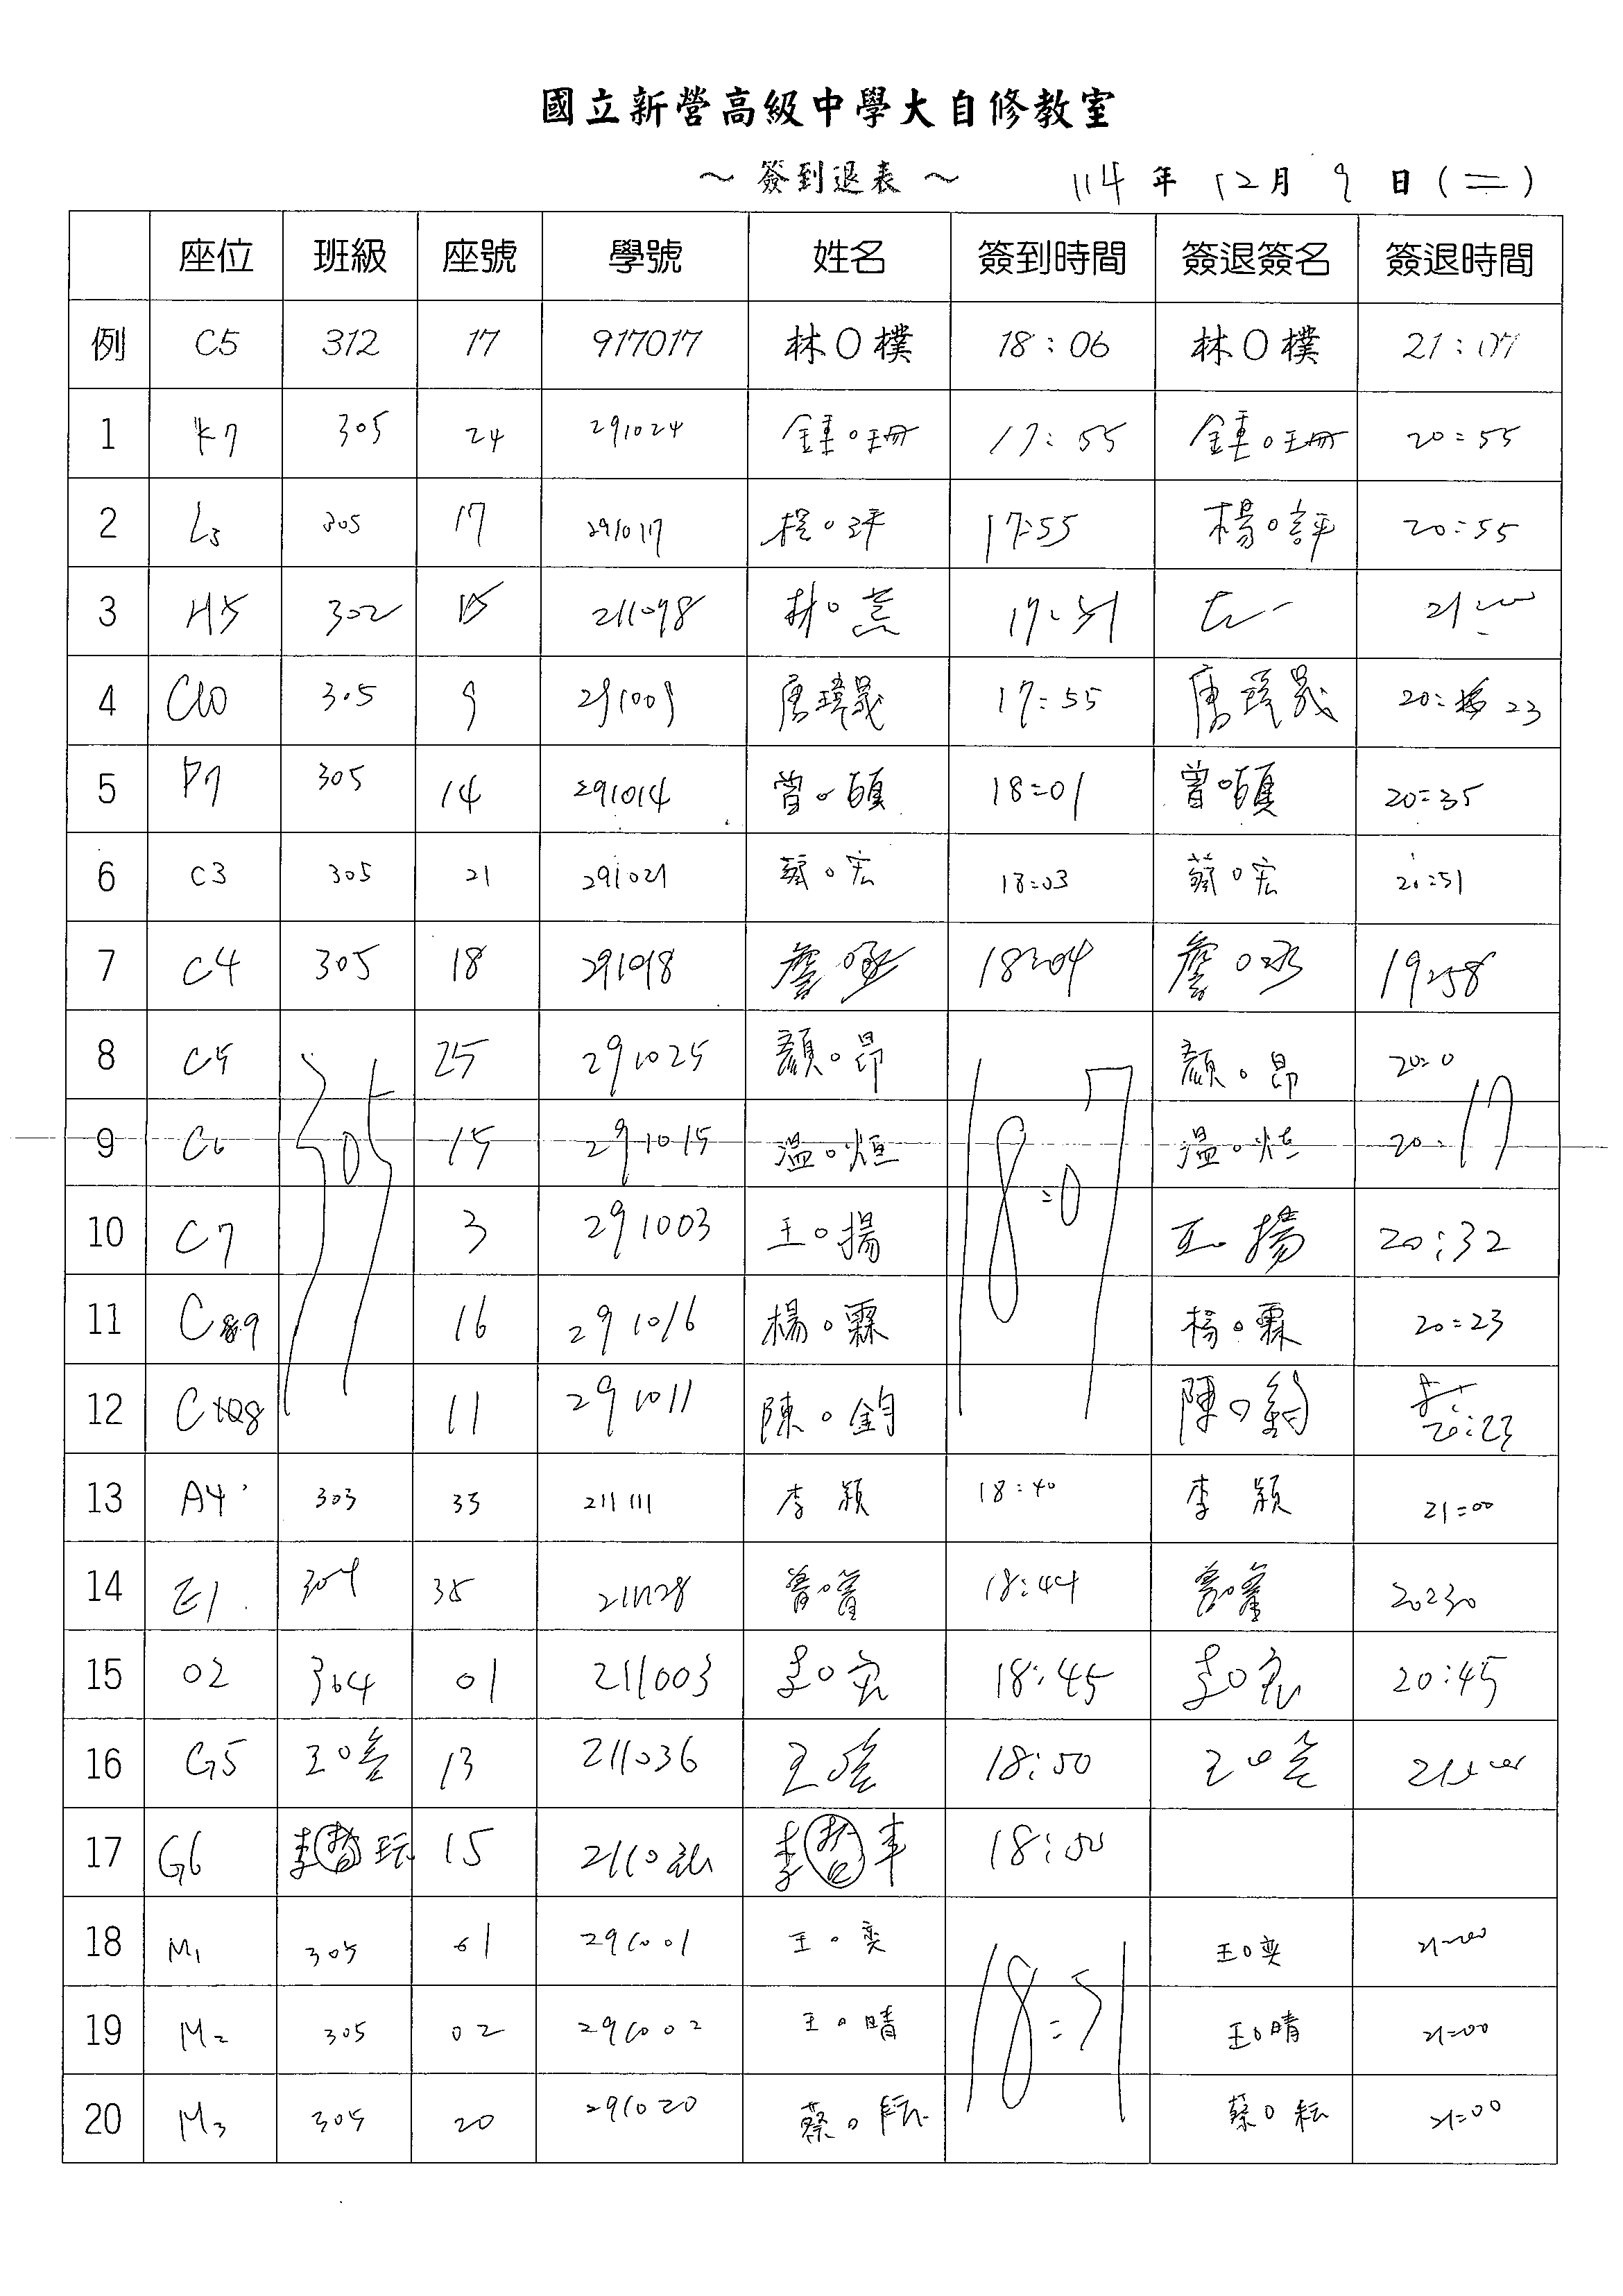 國立新營高級中學大自修教室
～簽到退表～ 114年12月9日(二)
座位 班級 座號 學號 姓名 簽到時間 簽退簽名 簽退時間
例 C5 312 17 917017 林O樸 18:06 林O樸 21:07
1 K7 305 24 291024 鍾O珊 17:55 鍾O珊 20:55
2 L3 305 17 291017 楊O評 17:55 楊O評 20:55
3 H5 302 211098 林O 17:51 21:00
4 C10 305 9 291009 唐瑋晟 17:55 唐瑋晟 20:23
5 P7 305 14 291014 曾O頤 18:01 曾O頤 20:35
6 C3 305 21 291021 蔡O宏 18:03 蔡O宏 20:51
7 C4 305 18 291018 詹O丞 18:04 詹O丞 19:58
8 C5 305 25 291025 顏O昂 18:07 顏O昂 20:0
9 C6 15 291015 溫O烜 溫O烜 20:17
10 C7 3 291003 王O揚 王O揚 20:32
11 C9 16 291016 楊O霖 楊O霖 20:23
12 C8 11 291011 陳O鈞 陳O鈞 20:23
13 A4 303 33 211111 李 穎 18:40 李 穎 21:00
14 E1 304 38 211128 18:44 20:30
15 O2 304 01 211003 李O宏 18:45 李O宏 20:45
16 G5 13 211036 王O 18:50 王O 21:00
17 G6 李 15 2110 李 18:50
18 M1 305 01 291001 王O奕 18:51 王O奕 21:00
19 M2 305 02 291002 王O晴 王O晴 21:00
20 M3 305 20 291020 蔡O耘 蔡O耘 21:00